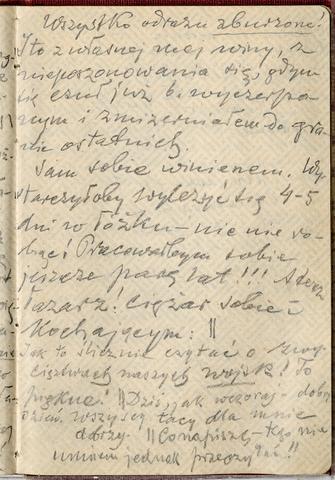 Wszystko odrazu zburzone!
I to z własnej mej winy, z
nieposzanowania się, gdym
się czuł już b. wyczerpa-
nym i zmizerniałem do gra-
nic ostatnich.
Sam sobie winienem. Wy-
starczyłoby wyleżyć się 4-5
dni w łóżku - nic nie ro-
biąc! Pracowałbym sobie
jeszcze parę lat!!! A teraz
łazarz! Ciężar sobie i
Kochającym: ||
Jak to ślicznie czytać o zwy-
cięstwach naszych wojsk! To
piękne! || Dziś, jak wczoraj - dobry
dzień, wszyscy tacy dla mnie
dobrzy. || Co napiszę - tego nie
umiem jednak przeczytać!!